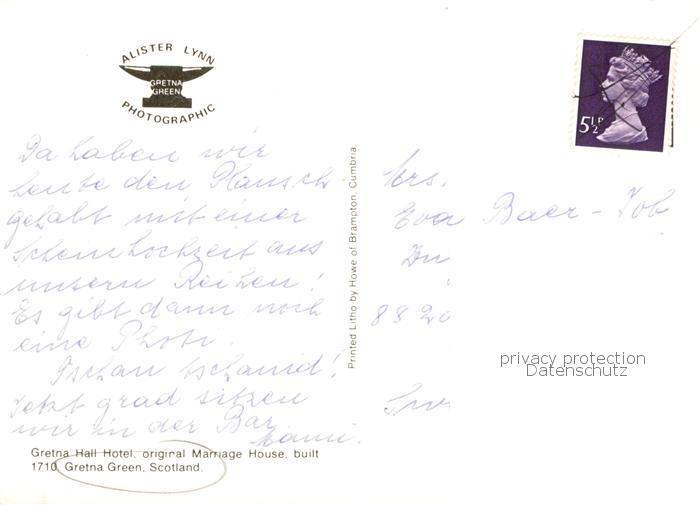 ALISTER LYNN
GRETNA
GREEN
PHOTOGRAPHIC
5½P
Da haben wir
heute den Plausch
gehabt mit einer
Scheinhochzeit aus
unsern Reihen!
Es gibt dann noch
eine Photi.
Tschau tschamid!
Jetzt grad sitzen
wir in der Bar
Mami.
Gretna Hall Hotel, original Marriage House, built
1710, Gretna Green, Scotland.
Printed Litho by Howe of Brampton, Cumbria
Mrs.
Eva Baer - Tob
8820
privacy protection
Datenschutz